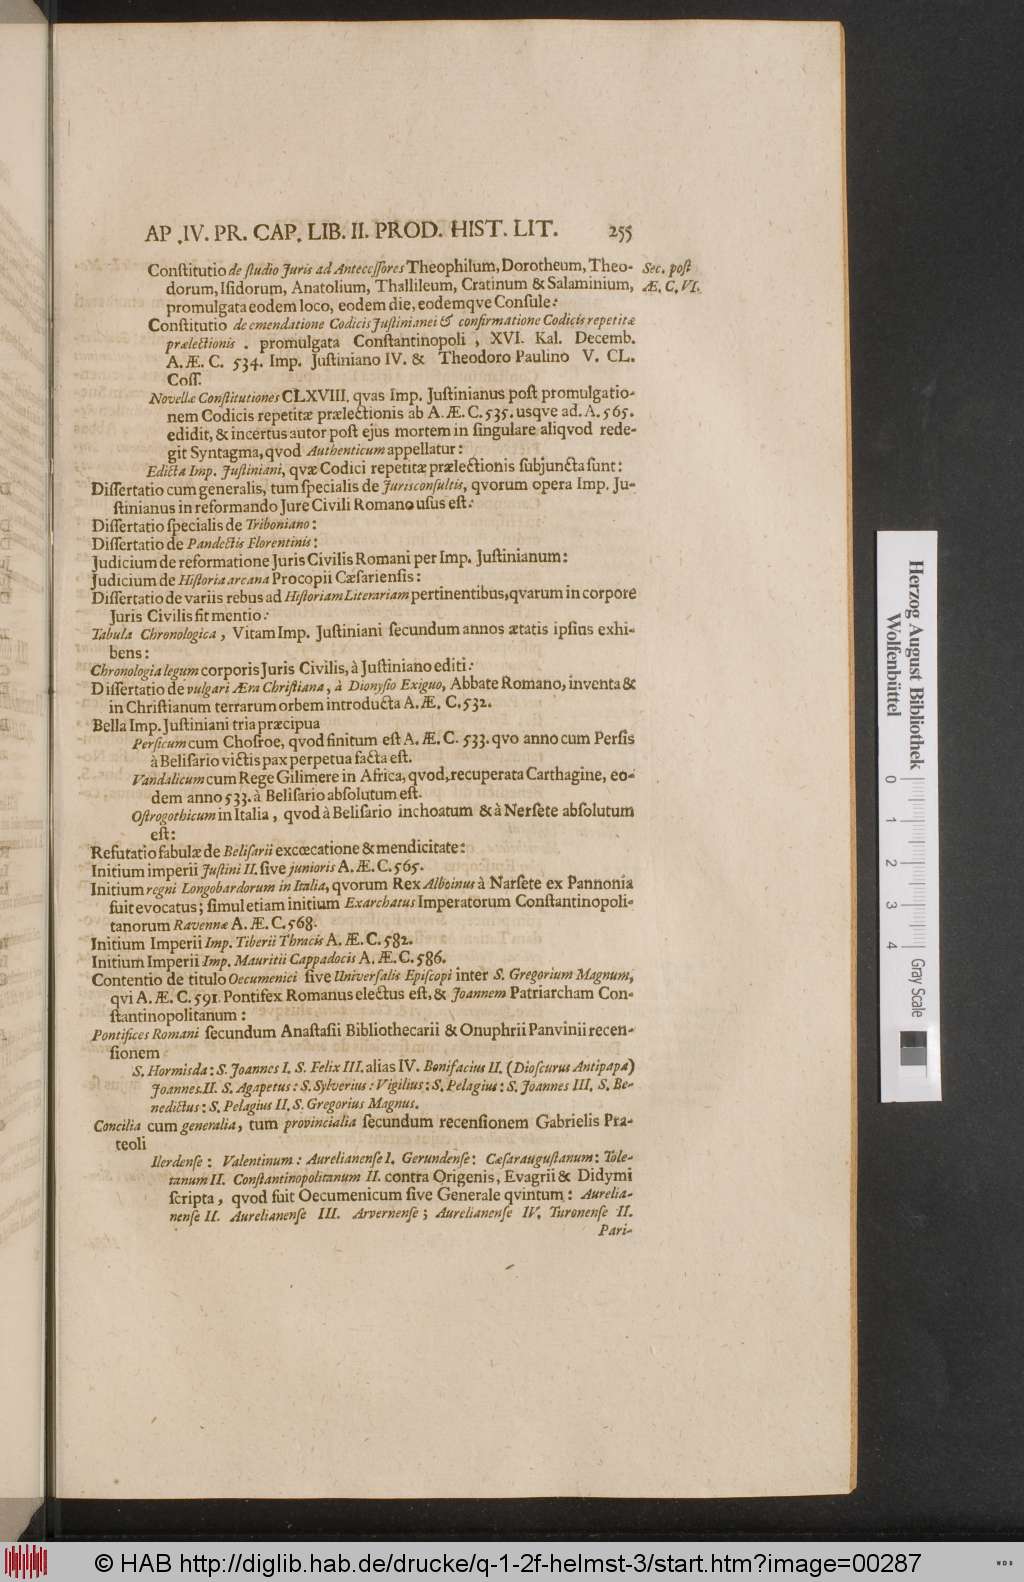 AP .IV. PR. CAP. LIB. II. PROD. HIST. LIT. 255
Conſtitutio de ſtudio Juris ad Anteceſſores Theophilum, Dorotheum, Theo-
dorum, Iſidorum, Anatolium, Thallileum, Cratinum & Salaminium,
promulgata eodem loco, eodem die, eodemqve Conſule:
Sec. poſt
Æ. C. VI.
Conſtitutio de emendatione Codicis Juſtinianei & confirmatione Codicis repetitæ
prælectionis . promulgata Conſtantinopoli , XVI. Kal. Decemb.
A. Æ. C. 534. Imp. Juſtiniano IV. & Theodoro Paulino V. CL.
Coſſ.
Novellæ Conſtitutiones CLXVIII. qvas Imp. Juſtinianus poſt promulgatio-
nem Codicis repetitæ prælectionis ab A. Æ. C. 535. usqve ad. A. 565.
edidit, & incertus autor poſt ejus mortem in ſingulare aliqvod rede-
git Syntagma, qvod Authenticum appellatur:
Edicta Imp. Juſtiniani, qvæ Codici repetitæ prælectionis ſubjuncta ſunt:
Diſſertatio cum generalis, tum ſpecialis de Jurisconſultis, qvorum opera Imp. Ju-
ſtinianus in reformando Jure Civili Romano uſus eſt:
Diſſertatio ſpecialis de Triboniano:
Diſſertatio de Pandectis Florentinis:
Judicium de reformatione Juris Civilis Romani per Imp. Juſtinianum:
Judicium de Hiſtoria arcana Procopii Cæſarienſis:
Diſſertatio de variis rebus ad Hiſtoriam Literariam pertinentibus, qvarum in corpore
Juris Civilis fit mentio:
Tabula Chronologica , Vitam Imp. Juſtiniani ſecundum annos ætatis ipſius exhi-
bens:
Chronologia legum corporis Juris Civilis, à Juſtiniano editi:
Diſſertatio de vulgari Æra Chriſtiana, à Dionyſio Exiguo, Abbate Romano, inventa &
in Chriſtianum terrarum orbem introducta A. Æ. C. 532.
Bella Imp. Juſtiniani tria præcipua
Perſicum cum Choſroe, qvod finitum eſt A. Æ. C. 533. qvo anno cum Perſis
à Beliſario victis pax perpetua facta eſt.
Vandalicum cum Rege Gilimere in Africa, qvod, recuperata Carthagine, eo-
dem anno 533. à Beliſario abſolutum eſt.
Oſtrogothicum in Italia , qvod à Beliſario inchoatum & à Nerſete abſolutum
eſt:
Refutatio fabulæ de Beliſarii excœcatione & mendicitate:
Initium imperii Juſtini II. ſive junioris A. Æ. C. 565.
Initium regni Longobardorum in Italia, qvorum Rex Alboinus à Narſete ex Pannonia
fuit evocatus; ſimul etiam initium Exarchatus Imperatorum Conſtantinopoli-
tanorum Ravennæ A. Æ. C. 568.
Initium Imperii Imp. Tiberii Thracis A. Æ. C. 582.
Initium Imperii Imp. Mauritii Cappadocis A. Æ. C. 586.
Contentio de titulo Oecumenici ſive Univerſalis Epiſcopi inter S. Gregorium Magnum,
qvi A. Æ. C. 591. Pontifex Romanus electus eſt, & Joannem Patriarcham Con-
ſtantinopolitanum:
Pontifices Romani ſecundum Anaſtaſii Bibliothecarii & Onuphrii Panvinii recen-
ſionem
S. Hormisda: S. Joannes I. S. Felix III. alias IV. Bonifacius II. (Dioſcurus Antipapa)
Joannes. II. S. Agapetus: S. Sylverius: Vigilius: S. Pelagius: S. Joannes III. S. Be-
nedictus: S. Pelagius II. S. Gregorius Magnus.
Concilia cum generalia, tum provincialia ſecundum recenſionem Gabrielis Pra-
teoli
Ilerdenſe: Valentinum: Aurelianenſe I. Gerundenſe: Cæſarauguſtanum: Tole-
tanum II. Conſtantinopolitanum II. contra Origenis, Evagrii & Didymi
ſcripta, qvod fuit Oecumenicum ſive Generale qvintum: Aurelia-
nenſe II. Aurelianenſe III. Arvernenſe; Aurelianenſe IV. Turonenſe II.
Pari-
Herzog August Bibliothek
Wolfenbüttel
0 1 2 3 4 Gray Scale
© HAB http://diglib.hab.de/drucke/q-1-2f-helmst-3/start.htm?image=00287